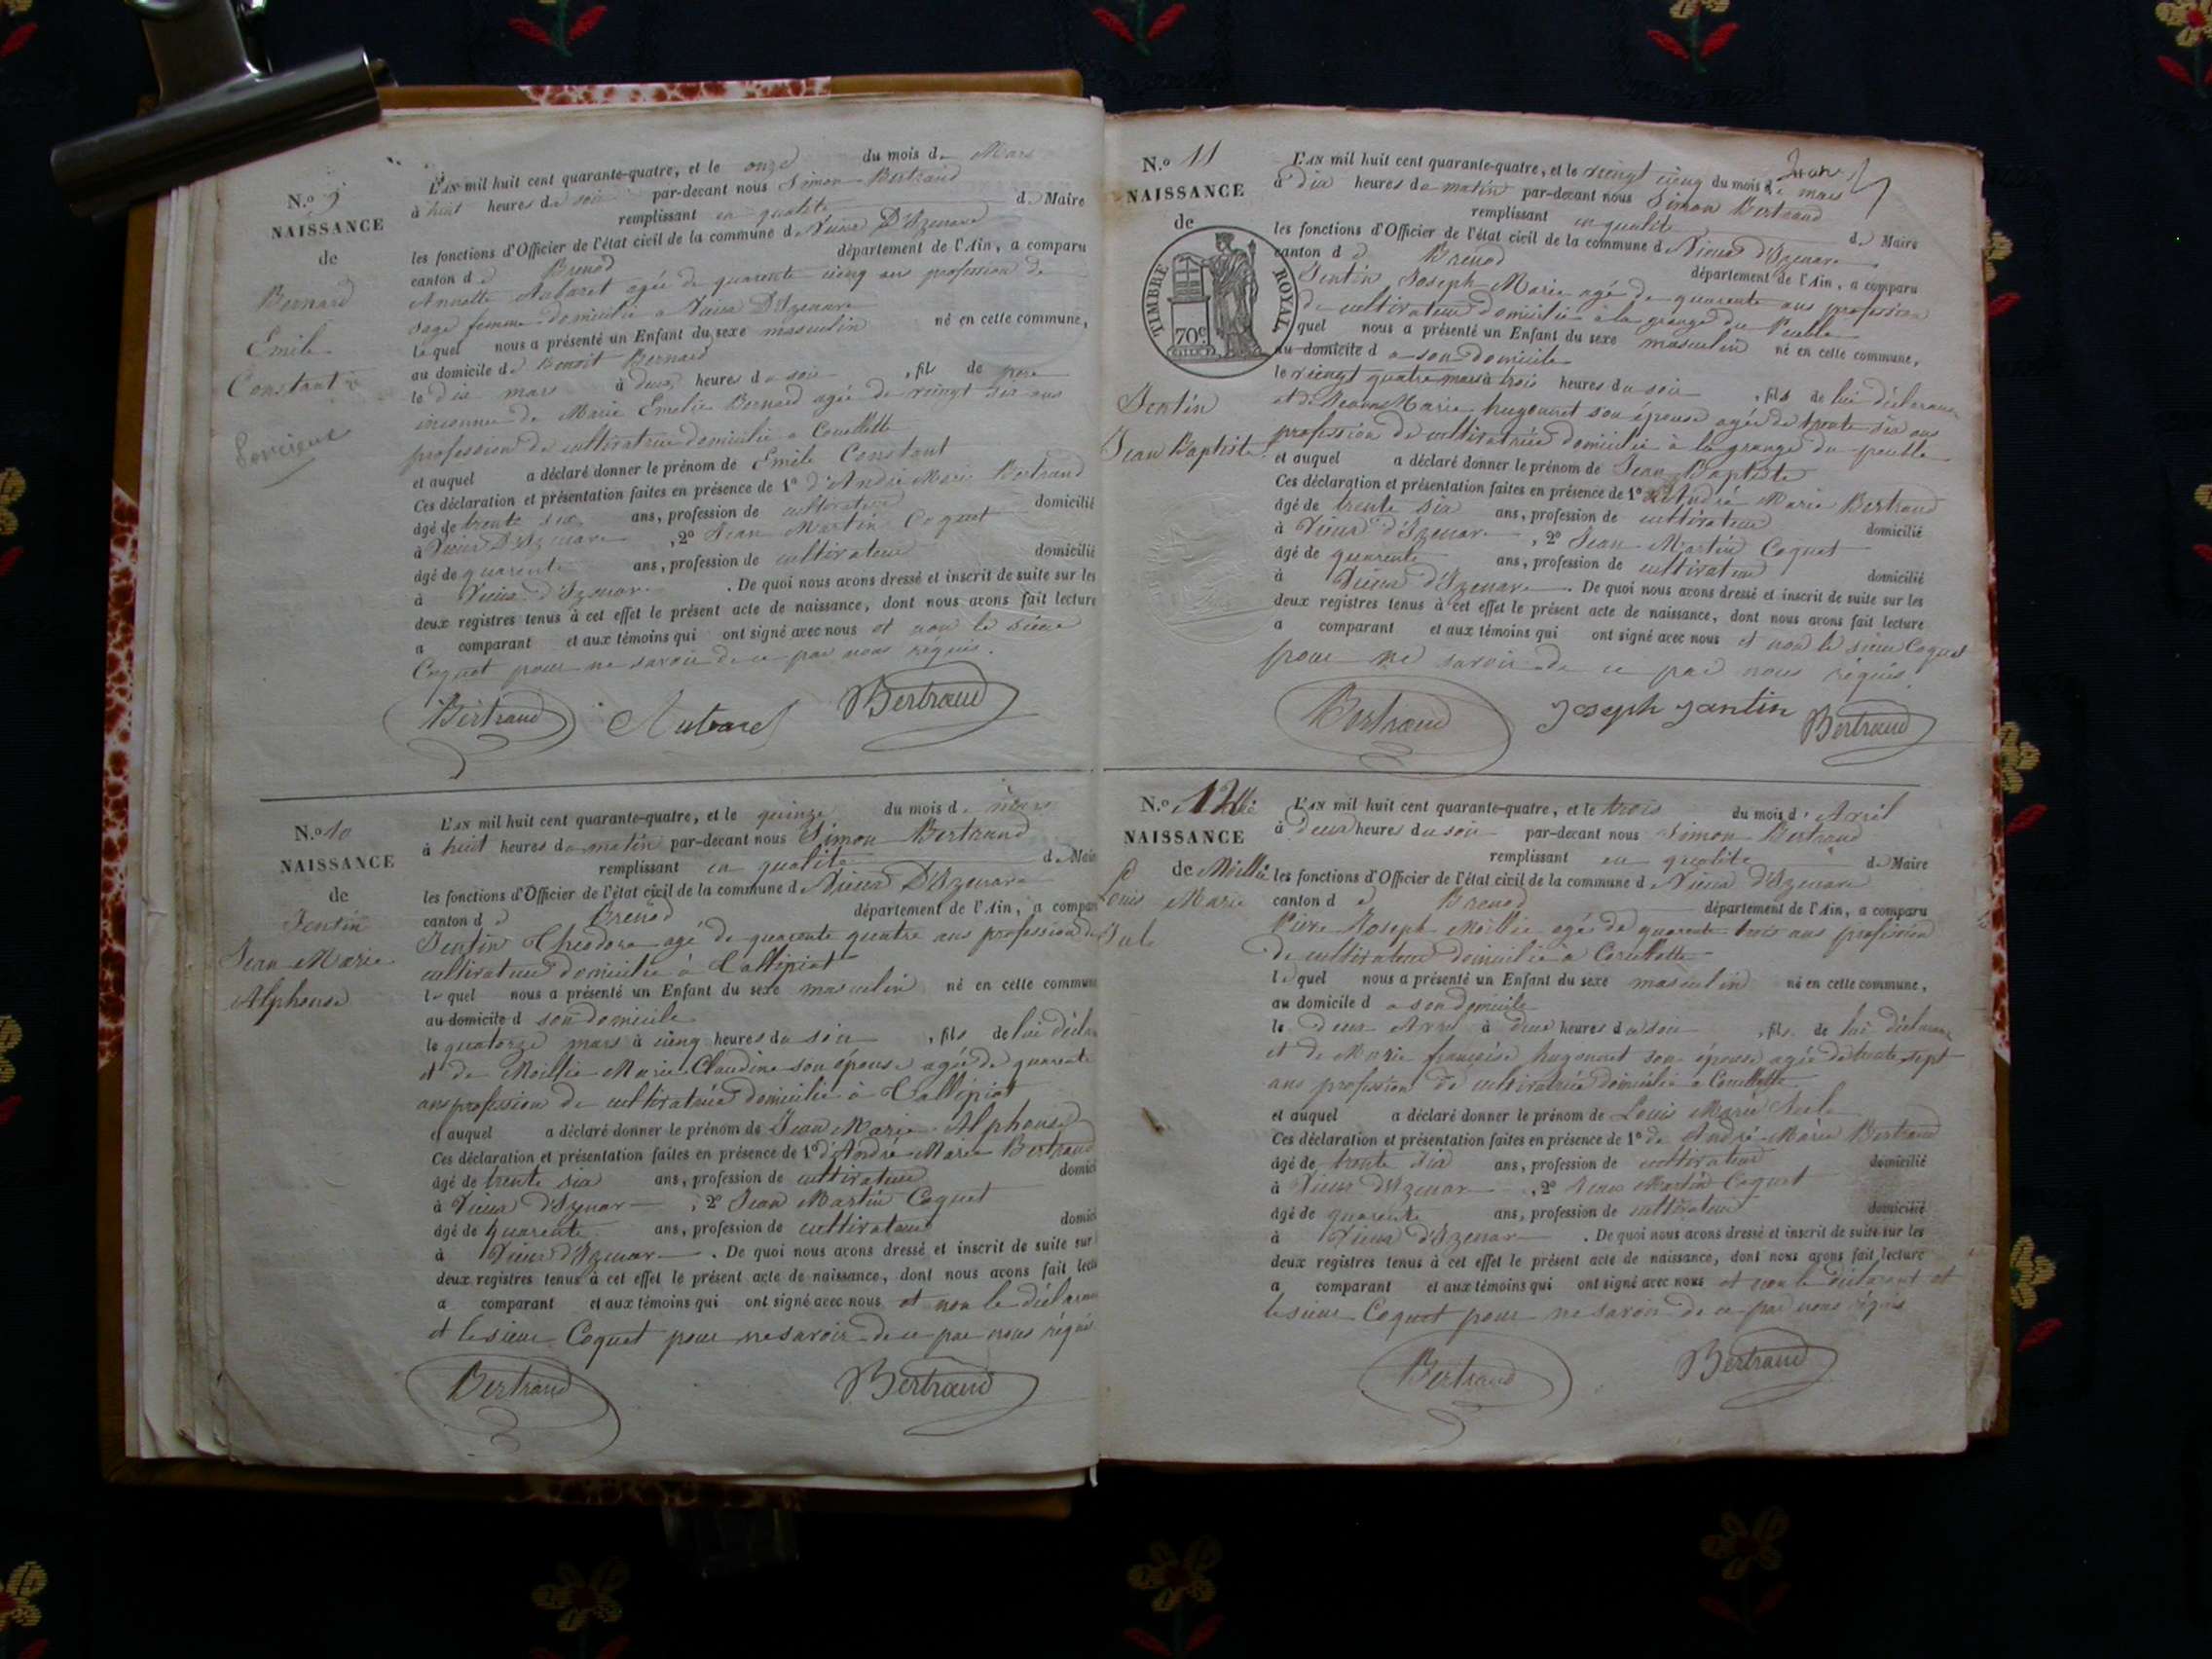 N.º 9
NAISSANCE
de
Bernard
Emile
Constant
L'AN mil huit cent quarante-quatre, et le onze du mois de Mars
à huit heures du soir par-devant nous Simon Bertrand
remplissant en qualité de Maire
les fonctions d'Officier de l'état civil de la commune de Vieux D'Izenave
canton de Brenod département de l'Ain, a comparu
Annette agée de quarente cinq ans profession de
sage femme domicilié a Vieux D'Izenave
lequel nous a présenté un Enfant du sexe masculin né en cette commune,
au domicile de Benoit Bernard
le dix mars à deux heures du soir, fils de pere
inconnu de Marie Emelie Bernard agée de vingt six ans
profession de cultivatrice domicilié a Couillette
et auquel a déclaré donner le prénom de Emile Constant
Ces déclaration et présentation faites en présence de 1º d'André Marie Bertrand
âgé de trente six ans, profession de cultivateur domicilié
à Vieux D'Izenave, 2º Jean Martin Coquet
âgé de quarente ans, profession de cultivateur domicilié
à Vieux d'Izenave. De quoi nous avons dressé et inscrit de suite sur les
deux registres tenus à cet effet le présent acte de naissance, dont nous avons fait lecture
a comparant et aux témoins qui ont signé avec nous et non le sieur
Coquet pour ne savoir de ce par nous requis.
Bertrand Bertrand
N.º 10
NAISSANCE
de
Jentin
Jean Marie
Alphonse
L'AN mil huit cent quarante-quatre, et le quinze du mois de mars
à huit heures du matin par-devant nous Simon Bertrand
remplissant en qualité de Mai
les fonctions d'Officier de l'état civil de la commune de Vieux D'Izenave
canton de Brenod département de l'Ain, a compar
Jentin Theodore agé de quarente quatre ans profession de
cultivateur domicilié à Tallipiat
lequel nous a présenté un Enfant du sexe masculin né en cette commune
au domicile d son domicile
le quatorze mars à cinq heures du soir, fils de lui décla
et de Moillie Marie Claudine son épouse agée de quarente
ans profession de cultivatrice domicilié à Tallipiat
et auquel a déclaré donner le prénom de Jean Marie Alphonse
Ces déclaration et présentation faites en présence de 1º d'André Marie Bertrand
âgé de trente six ans, profession de cultivateur domici
à Vieux d'Izenave, 2º Jean Martin Coquet
âgé de quarente ans, profession de cultivateur domici
à Vieux d'Izenave. De quoi nous avons dressé et inscrit de suite sur
deux registres tenus à cet effet le présent acte de naissance, dont nous avons fait lectu
a comparant et aux témoins qui ont signé avec nous et non le déclarant
et le sieur Coquet pour ne savoir de ce par nous réquis
Bertrand Bertrand
N.º 11
NAISSANCE
de
TIMBRE ROYAL
70c
Jentin
Jean Baptiste
L'AN mil huit cent quarante-quatre, et le vingt cinq du mois de mars
à dix heures du matin par-devant nous Simon Bertrand
remplissant en qualité de Maire
les fonctions d'Officier de l'état civil de la commune de Vieux d'Izenave
canton de Brenod département de l'Ain, a comparu
Jentin Joseph Marie agé de quarente ans profession
de cultivateur domicilié à la grange du Peuble
quel nous a présenté un Enfant du sexe masculin né en cette commune,
au domicile d a son domicile
le vingt quatre mars à trois heures du soir, fils de lui déclarant
et de Jeanne Marie hugonnet son épouse agée de trente six ans
profession de cultivatrice domicilié à la grange du peuble
et auquel a déclaré donner le prénom de Jean Baptiste
Ces déclaration et présentation faites en présence de 1º d'André Marie Bertrand
âgé de trente six ans, profession de cultivateur domicilié
à Vieux d'Izenave, 2º Jean Martin Coquet
âgé de quarente ans, profession de cultivateur domicilié
à Vieux d'Izenave. De quoi nous avons dressé et inscrit de suite sur les
deux registres tenus à cet effet le présent acte de naissance, dont nous avons fait lecture
a comparant et aux témoins qui ont signé avec nous et non le sieur Coquet
pour ne savoir de ce par nous réquis
Bertrand Joseph Jantin Bertrand
N.º 12
NAISSANCE
de Moillie
Louis Marie
Jule
L'AN mil huit cent quarante-quatre, et le trois du mois d'Avril
à Deux heures du soir par-devant nous Simon Bertrand
remplissant en qualité de Maire
les fonctions d'Officier de l'état civil de la commune de Vieux d'Izenave
canton de Brenod département de l'Ain, a comparu
Pierre Joseph Moillie agé de quarente trois ans profession
de cultivateur domicilié a Couillette
lequel nous a présenté un Enfant du sexe masculin né en cette commune,
au domicile d a son domicile
le Deux Avril à Deux heures du soir, fils de lui déclarant
et de Marie françoise hugonnet son épouse agée de trente sept
ans profession de cultivatrice domicilié a Couillette
et auquel a déclaré donner le prénom de Louis Marie Jule
Ces déclaration et présentation faites en présence de 1º de André Marie Bertrand
âgé de trente six ans, profession de cultivateur domicilié
à Vieux d'Izenave, 2º Jean Martin Coquet
âgé de quarente ans, profession de cultivateur domicilié
à Vieux d'Izenave. De quoi nous avons dressé et inscrit de suite sur les
deux registres tenus à cet effet le présent acte de naissance, dont nous avons fait lecture
a comparant et aux témoins qui ont signé avec nous et non le déclarant et
le sieur Coquet pour ne savoir de ce par nous réquis
Bertrand Bertrand